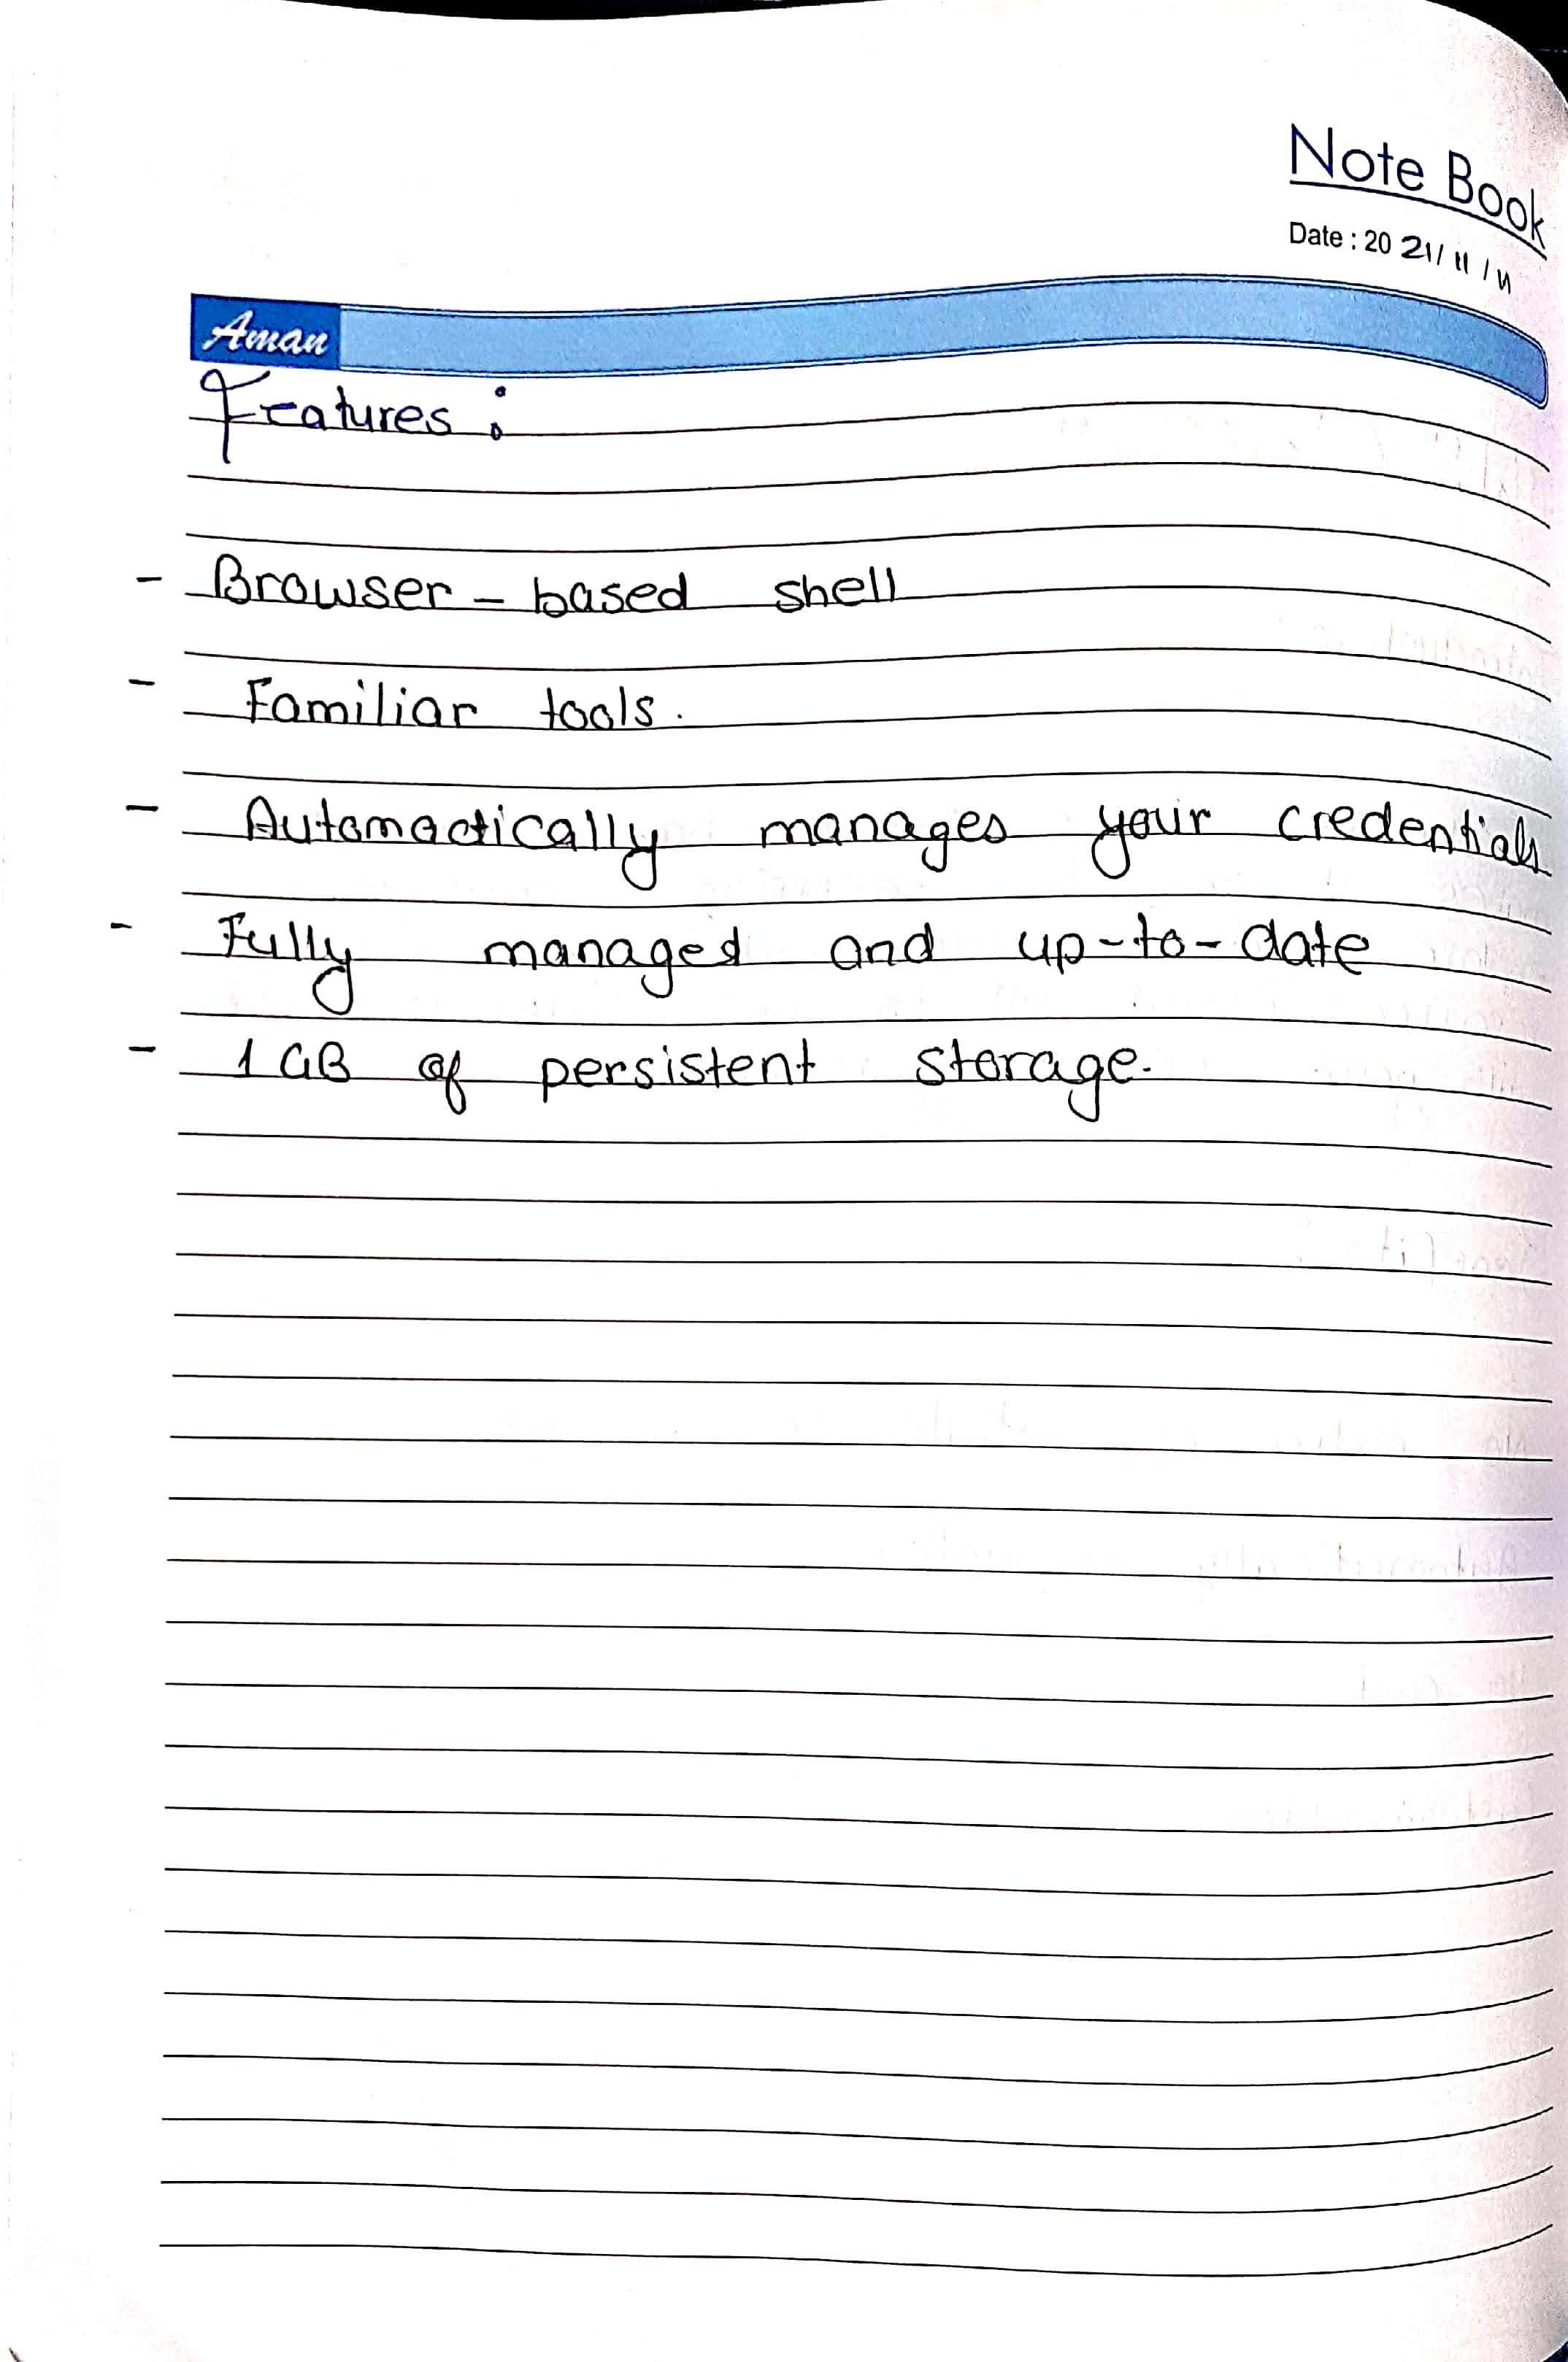 Note Book
Date : 20 21/ 11 / 11
Aman
Features :
- Browser - based shell
- Familiar tools.
- Automactically manages your credentials
- Fully managed and up-to-date
- 1 GB of persistent storage.